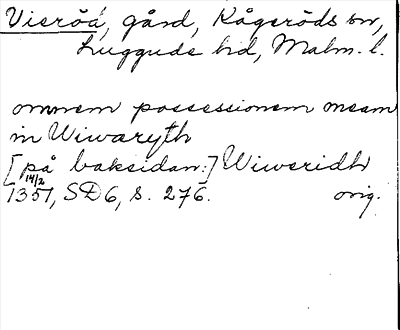 Vieröd, gård, Kågeröds sn,
Luggude hd, Malm. l.
omnem possessionem meam
in Wiwæryth
[på baksidan:] Wiweridh
14/2
1351, SD 6, s. 276. orig.